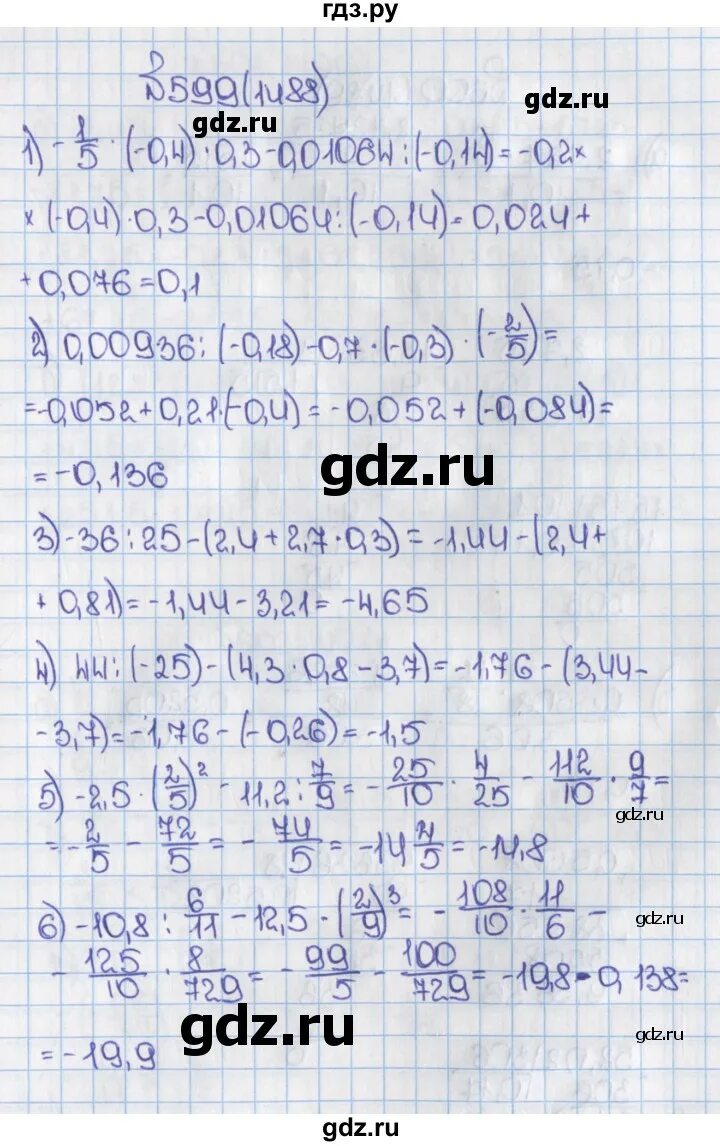 гдз.ру
№599(1488)
gdz.ru
gdz.ru
1) -1/5 · (-0,4) · 0,3 - 0,01064 : (-0,14) = -0,2 ×
× (-0,4) · 0,3 - 0,01064 : (-0,14) = 0,024 +
+ 0,076 = 0,1
2) 0,00936 : (-0,18) - 0,7 · (-0,3) · (-2/5) =
= -0,052 + 0,21 · (-0,4) = -0,052 + (-0,084) =
= -0,136
gdz.ru
3) -36 : 25 - (2,4 + 2,7 · 0,3) = -1,44 - (2,4 +
+ 0,81) = -1,44 - 3,21 = -4,65
4) 44 : (-25) - (4,3 · 0,8 - 3,7) = -1,76 - (3,44 -
- 3,7) = -1,76 - (-0,26) = -1,5
5) -2,5 · (2/5)² - 11,2 : 7/9 = -25/10 · 4/25 - 112/10 · 9/7 =
gdz.ru
= -2/5 - 72/5 = -74/5 = -14 4/5 = -14,8
6) -10,8 : 6/11 - 12,5 · (2/9)³ = -108/10 · 11/6 -
gdz.ru
- 125/10 · 8/729 = -99/5 - 100/729 = -19,8 - 0,138 =
gdz.ru
gdz.ru
= -19,9
gdz.ru